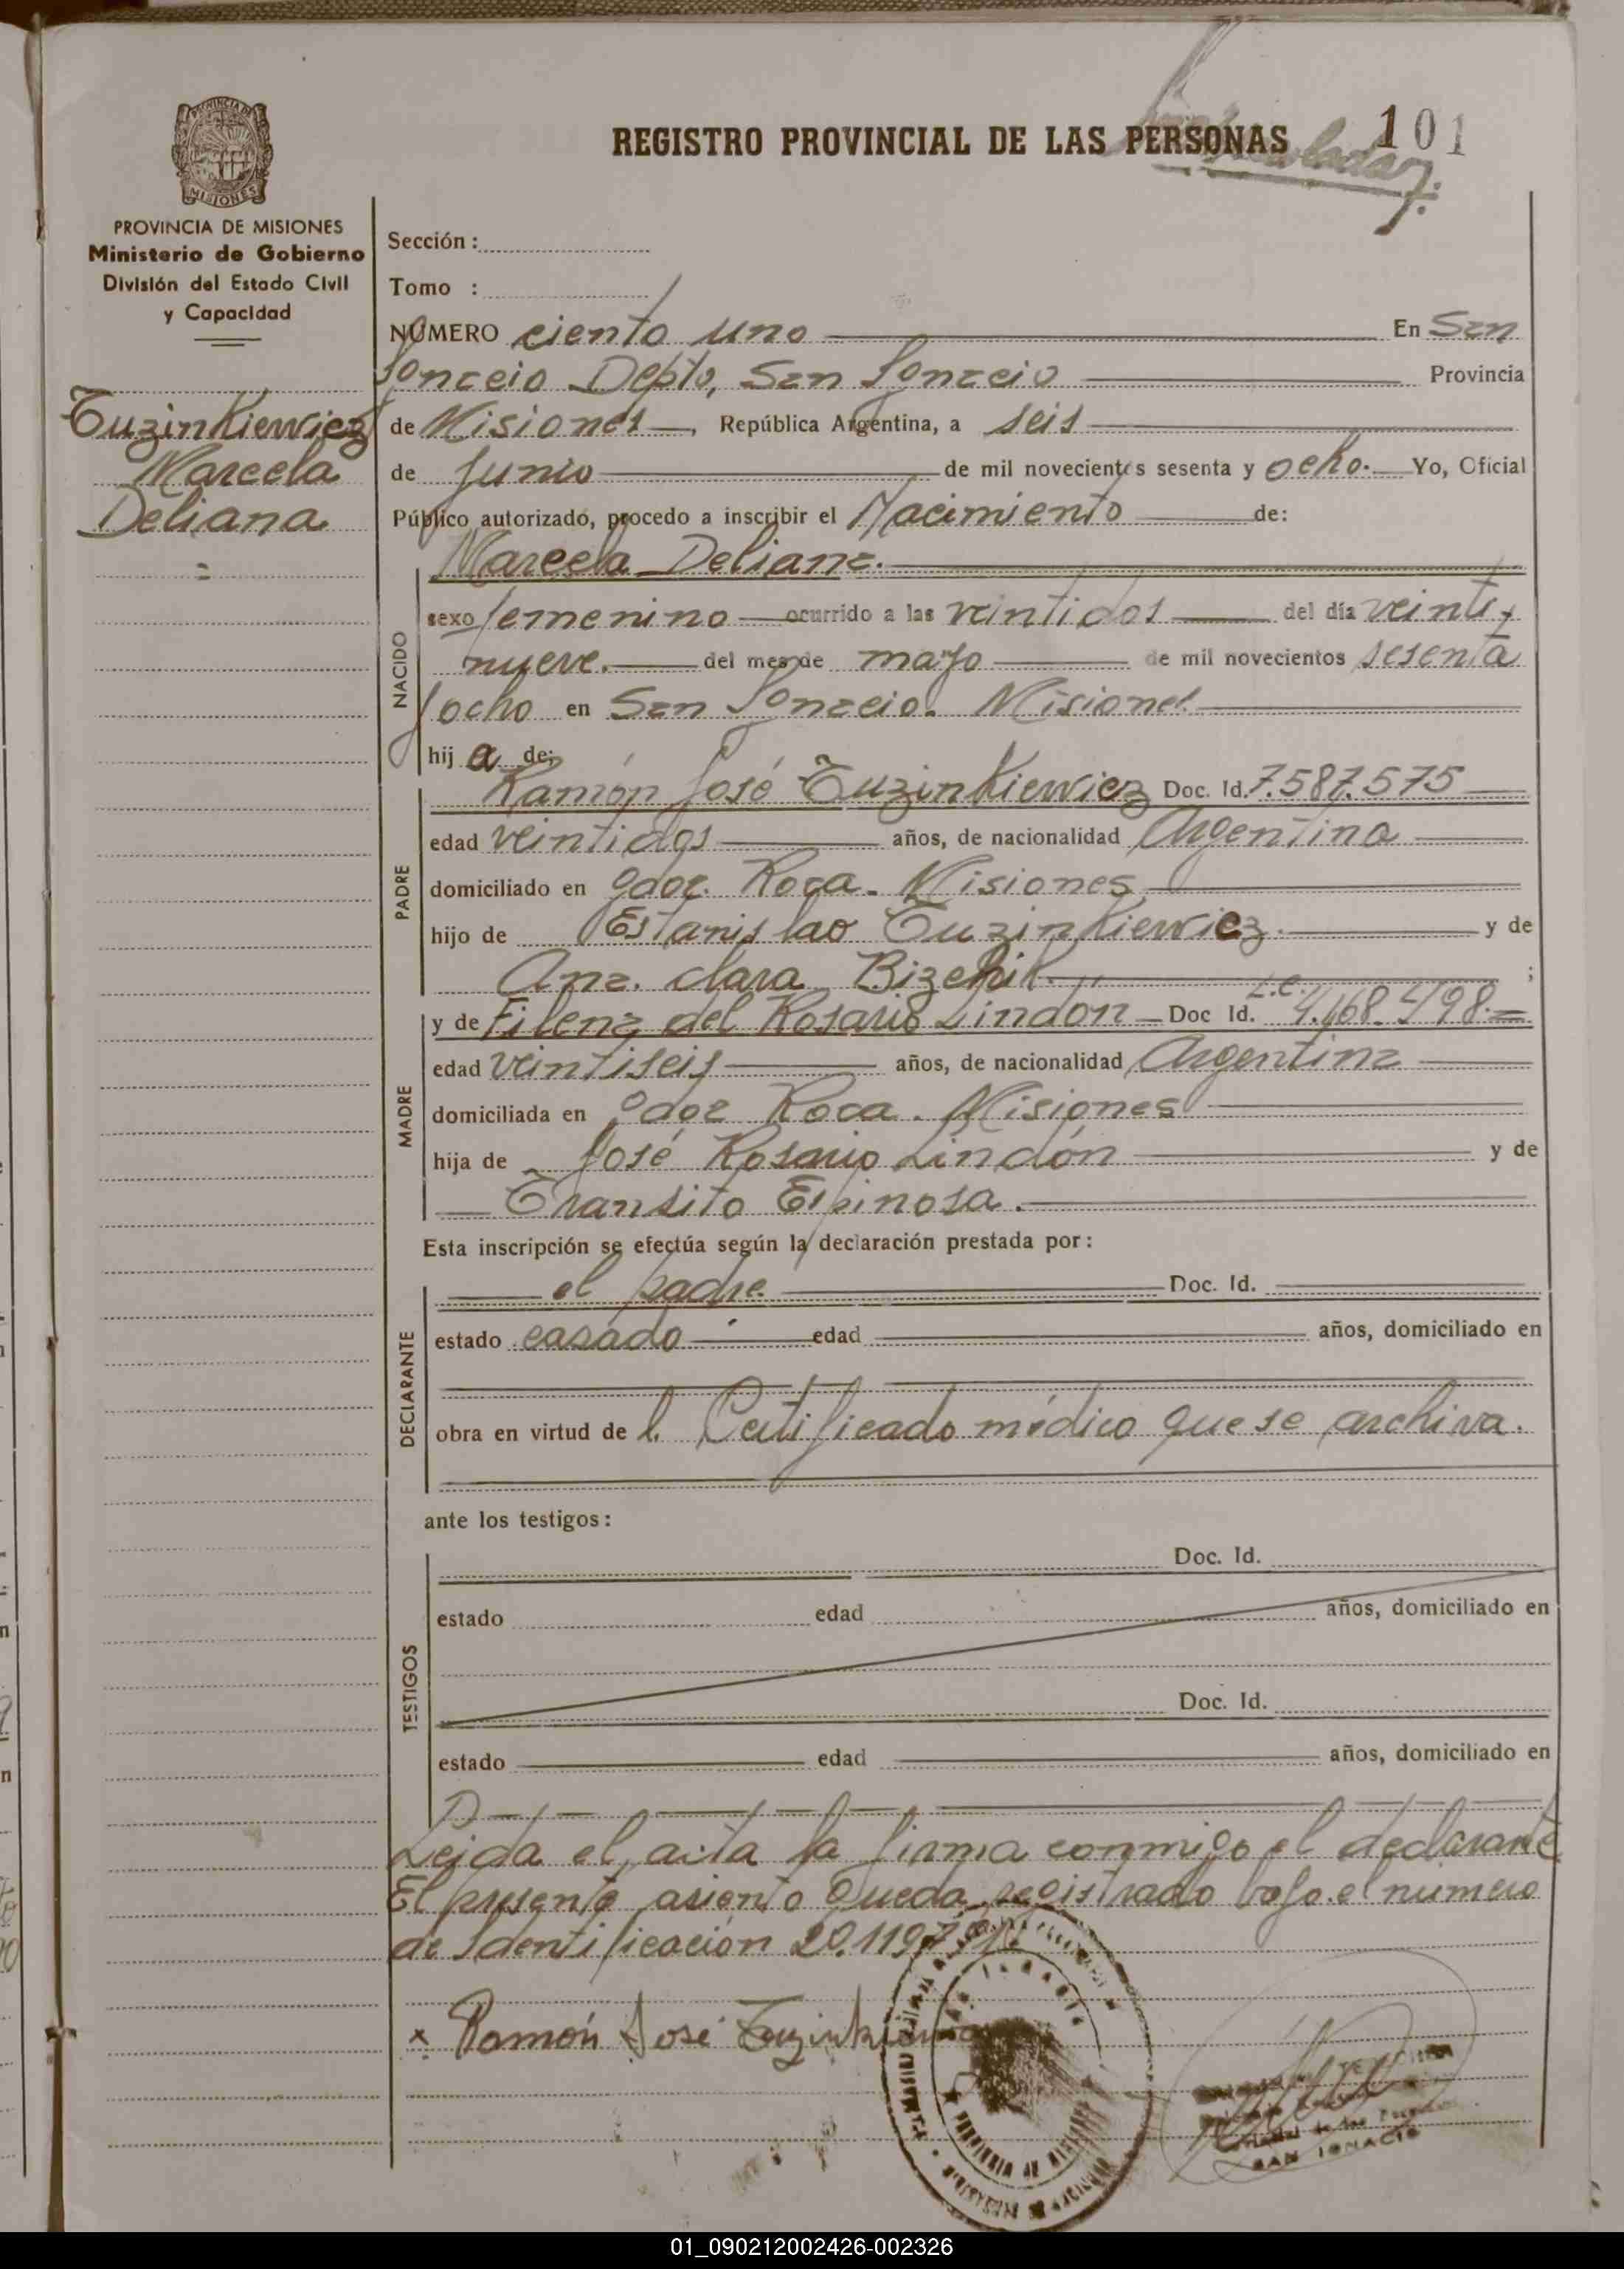 REGISTRO PROVINCIAL DE LAS PERSONAS
101
MISIONES
PROVINCIA DE MISIONES
Ministerio de Gobierno
División del Estado Civil
y Capacidad
Tuzinkiewicz
Marcela
Deliana
Sección :
Tomo :
NÚMERO ciento uno En San
Ignacio Depto, San Ignacio Provincia
de Misiones, República Argentina, a seis
de Junio de mil novecientos sesenta y ocho. Yo, Oficial
Público autorizado, procedo a inscribir el Nacimiento de:
NACIDO
Marcela Deliana.
sexo femenino ocurrido a las veintidos del día veinti
nueve. del mes de mayo de mil novecientos sesenta
y ocho en San Ignacio. Misiones
hij a de:
PADRE
Ramón José Tuzinkiewicz Doc. Id. 7.587.575
edad veintidos años, de nacionalidad Argentina
domiciliado en gdor. Roca. Misiones
hijo de Estanislao Tuzinkiewicz. y de
Ana. clara ;
MADRE
y de Filena del Rosario Lindón Doc Id. L.C. 4.168.498.=
edad veintiseis años, de nacionalidad Argentina
domiciliada en gdor Roca. Misiones
hija de José Rosario Lindón y de
Transito Espinosa.
Esta inscripción se efectúa según la declaración prestada por:
DECLARANTE
el padre. Doc. Id.
estado casado edad años, domiciliado en
obra en virtud de l. Certificado médico que se archiva.
ante los testigos:
TESTIGOS
Doc. Id.
estado edad años, domiciliado en
Doc. Id.
estado edad años, domiciliado en
Leida el acta la firma conmigo el declarante
El presente asiento queda registrado bajo el numero
de Identificación
x Ramón José
SAN IGNACIO
01_090212002426-002326